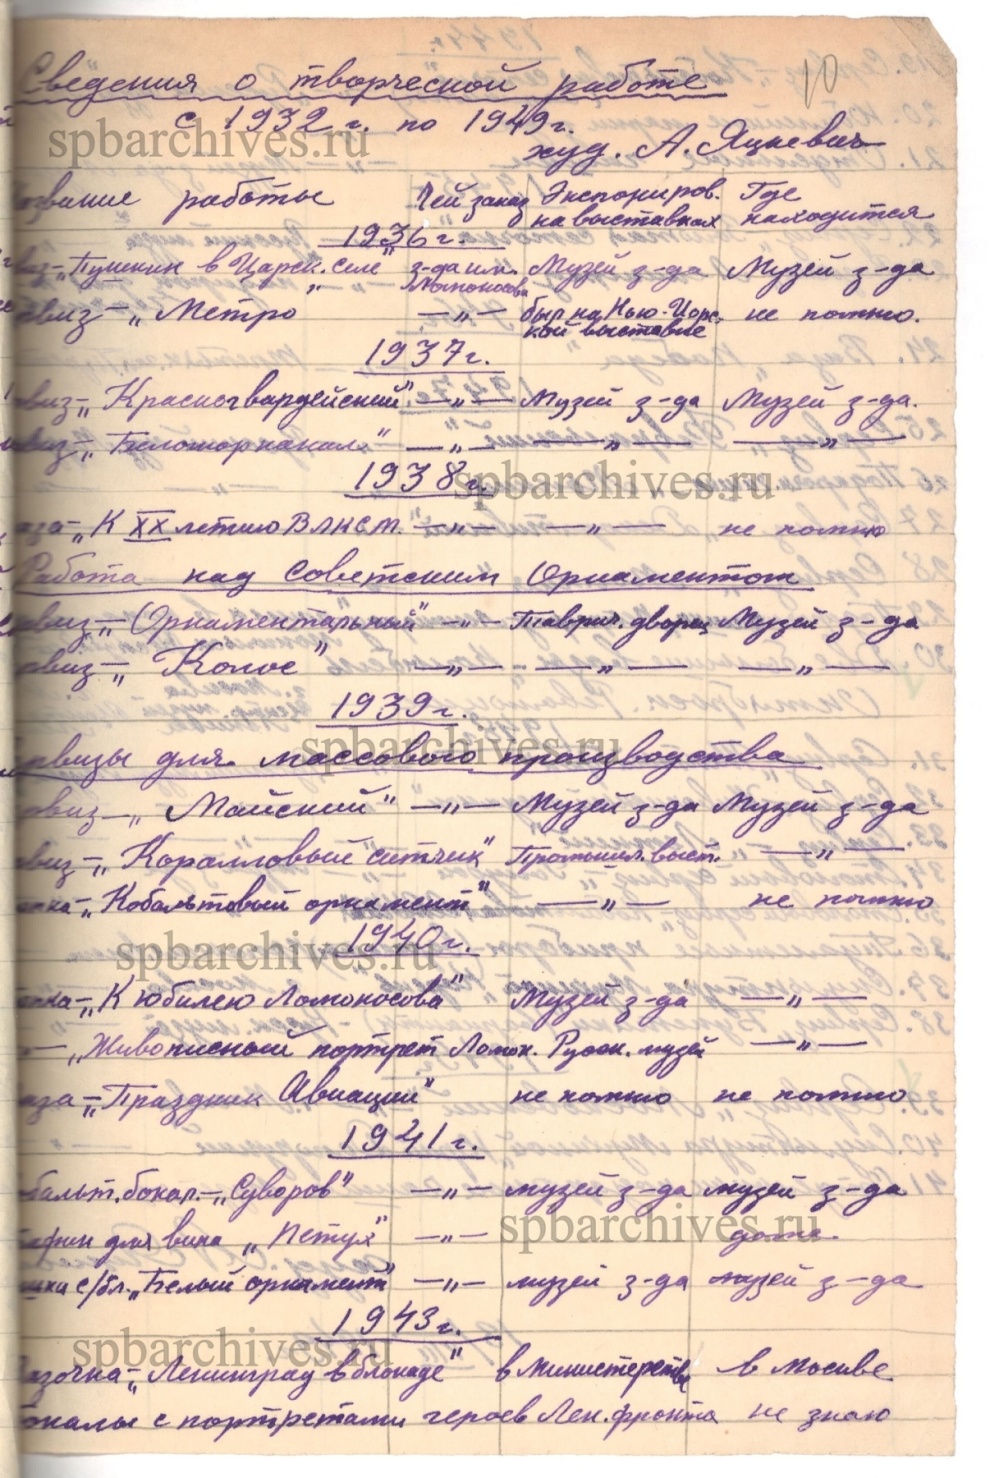 Сведения о творческой работе
10
с 1932 г. по 1949 г.
худ. А. Яцкевич
звание работы Чей заказ Экспониров. на выставках Где находится
1936 г.
виз-„Пушкин в Царск. селе" з-да им. Ломоносова Музей з-да Музей з-да
виз-„Метро" —„— был на Нью-Иорской выставке не помню.
1937 г.
виз-„Красногвардейский" —„— Музей з-да Музей з-да.
виз-„Беломорканал" —„— —„— —„—
1938 г.
аза-„К XX летию ВЛКСМ. —„— —„— не помню
Работа над Советским Орнаментом
виз-„Орнаментальный" —„— Таврич. дворец Музей з-да
рвиз-„Колос" —„— —„— —„—
1939 г.
рвизы для массового производства
виз-„Майский" —„— Музей з-да Музей з-да
виз-„Коралловый ситчик" Промышл. выст. —„—
шка-„Кобальтовый орнамент" —„— не помню
1940 г.
шка-„К юбилею Ломоносова" Музей з-да —„—
—„Живописный портрет Ломон. Русск. музей —„—
аза-„Праздник Авиации" не помню не помню
1941 г.
бальт. бокал-„Суворов" —„— музей з-да музей з-да
афин для вина „Петух" —„— дома.
шка с/бл. „Белый орнамент" —„— музей з-да музей з-да
1943 г.
Вазочка-„Ленинград в блокаде" в Министерстве в Москве
бокалы с портретами героев Лен. фронта не знаю
spbarchives.ru
spbarchives.ru
spbarchives.ru
spbarchives.ru
spbarchives.ru
spbarchives.ru